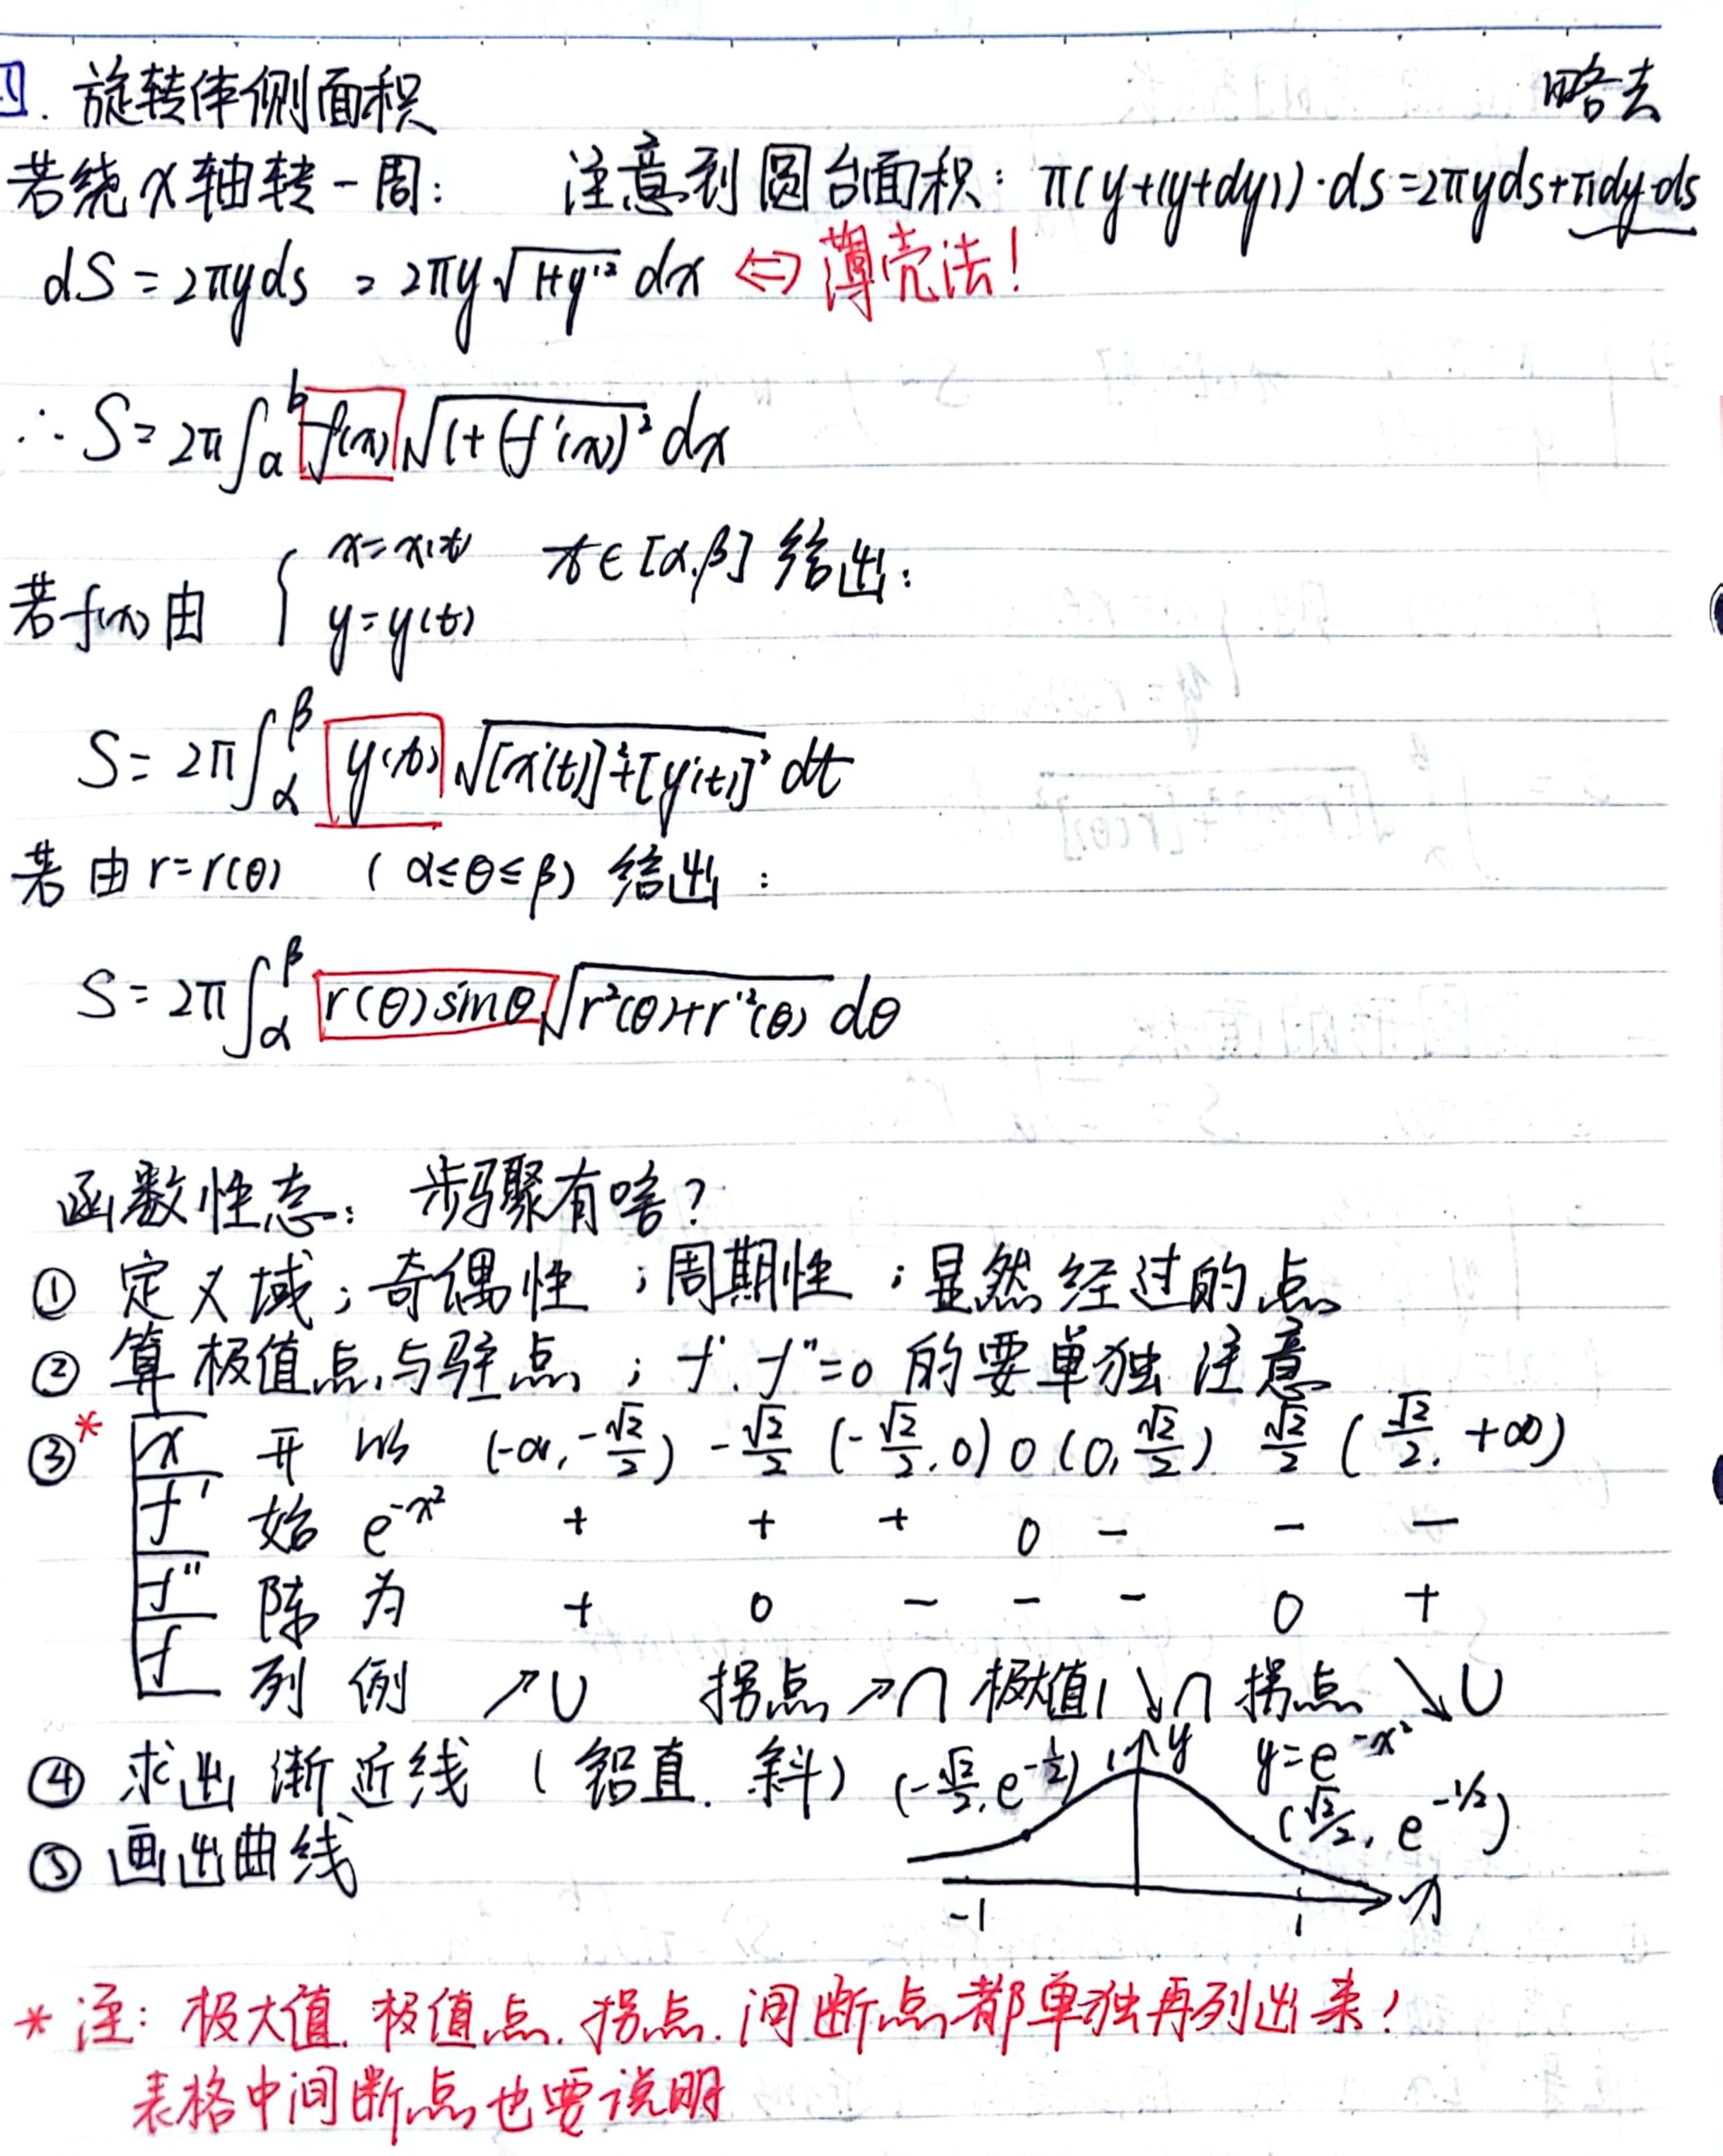 四. 旋转体侧面积 略去
若绕x轴转一周: 注意到圆台面积: π(y+(y+dy))·ds=2πyds+πdy·ds
dS=2πyds=2πy√(1+y'²) dx ⇔ 薄壳法!
∴ S=2π∫ₐᵇ f(x)√(1+(f'(x))² dx
若f(x)由 { x=x(t) t∈[α,β] 给出:
y=y(t)
S=2π∫_α^β y(t)√([x'(t)]²+[y'(t)]²) dt
若由r=r(θ) (α≤θ≤β) 给出:
S=2π∫_α^β r(θ)sinθ√(r²(θ)+r'²(θ)) dθ
函数性态: 步骤有啥?
① 定义域;奇偶性;周期性;显然经过的点
② 算极值点与驻点; f'.f''=0 的要单独注意
③* x 开 以 (-∞,-√2/2) -√2/2 (-√2/2,0) 0 (0,√2/2) √2/2 (√2/2,+∞)
f' 始 e^{-x²} + + + 0 - - -
f'' 陈 为 + 0 - - - 0 +
f 列 例 ↗∪ 拐点 ↗∩ 极大值1 ↘∩ 拐点 ↘∪
④ 求出渐近线 (铅直.斜) (-√2/2, e^{-1/2}) 1 y y=e^{-x²}
(√2/2, e^{-1/2})
⑤ 画出曲线
-1 1 x
* 注: 极大值.极值点.拐点.间断点都单独再列出来!
表格中间断点也要说明